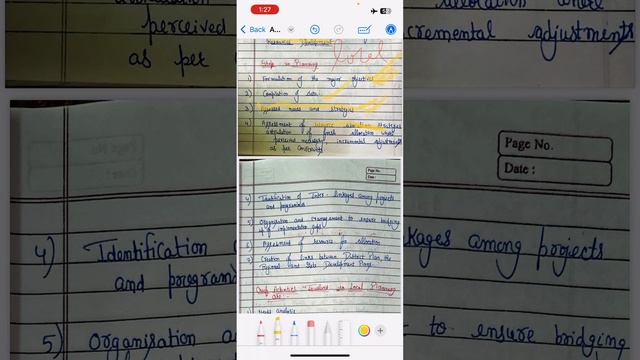 1:27
Back
A...
Resources Development
Local
Steps in Planning
1) Formulation of the major objectives
2) Compilation of data
3) needs and strategies
4) Assessment of resource allocation strategies
of fresh allocation where
perceived necessary, incremental adjustments
as per
Page No.
Date :
4) Identification of Inter-linkages among projects
and programmes
5) Organisation and to ensure bridging
of implementation gaps
6) Assessment of resources for allocation
7) Creation of links between District Plan, the
Regional and State Development Plans.
Chief Activities involved in Local Planning
are:-
1) analysis
perceived
as per
allocation where
incremental adjustments
Page No.
Date :
4) Identification
and
kages among projects
5) Organisation a
to ensure bridging